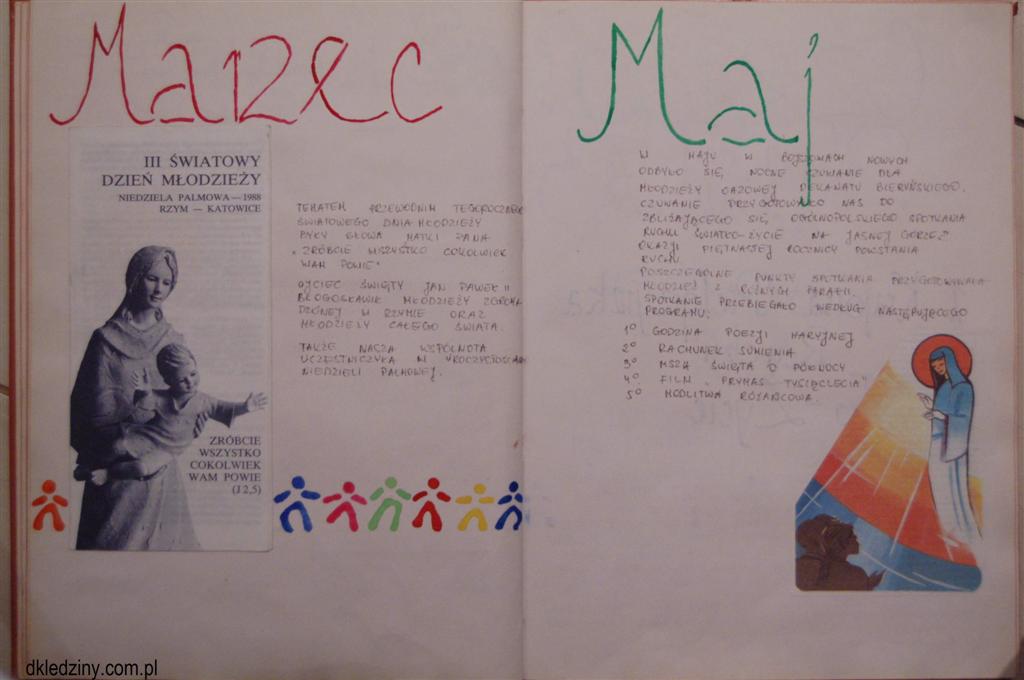 Marzec
III ŚWIATOWY
DZIEŃ MŁODZIEŻY
NIEDZIELA PALMOWA — 1988
RZYM — KATOWICE
ZRÓBCIE
WSZYSTKO
COKOLWIEK
WAM POWIE
(J 2,5)
TEMATEM PRZEWODNIM TEGOROCZNEGO
ŚWIATOWEGO DNIA MŁODZIEŻY
BYŁY SŁOWA MATKI PANA
„ZRÓBCIE WSZYSTKO COKOLWIEK
WAM POWIE"
OJCIEC ŚWIĘTY JAN PAWEŁ II
BŁOGOSŁAWIŁ MŁODZIEŻY ZGROMA
DZONEJ W RZYMIE ORAZ
MŁODZIEŻY CAŁEGO ŚWIATA.
TAKŻE NASZA WSPÓLNOTA
UCZESTNICZYŁA W UROCZYSTOŚCIACH
NIEDZIELI PALMOWEJ.
Maj
W MAJU W BOJSZOWACH NOWYCH
ODBYŁO SIĘ NOCNE CZUWANIE DLA
MŁODZIEŻY OAZOWEJ DEKANATU BIERUŃSKIEGO.
CZUWANIE PRZYGOTOWAŁO NAS DO
ZBLIŻAJĄCEGO SIĘ, OGÓLNOPOLSKIEGO SPOTKANIA
RUCHU ŚWIATŁO-ŻYCIE NA JASNEJ GÓRZE Z
OKAZJI PIĘTNASTEJ ROCZNICY POWSTANIA
RUCHU.
POSZCZEGÓLNE PUNKTY SPOTKANIA PRZYGOTOWAŁA
MŁODZIEŻ Z RÓŻNYCH PARAFII.
SPOTKANIE PRZEBIEGAŁO WEDŁUG NASTĘPUJĄCEGO
PROGRAMU:
1° GODZINA POEZJI MARYJNEJ
2° RACHUNEK SUMIENIA
3° MSZA ŚWIĘTA O PÓŁNOCY
4° FILM „PRYMAS TYSIĄCLECIA"
5° MODLITWA RÓŻAŃCOWA.
dkledziny.com.pl